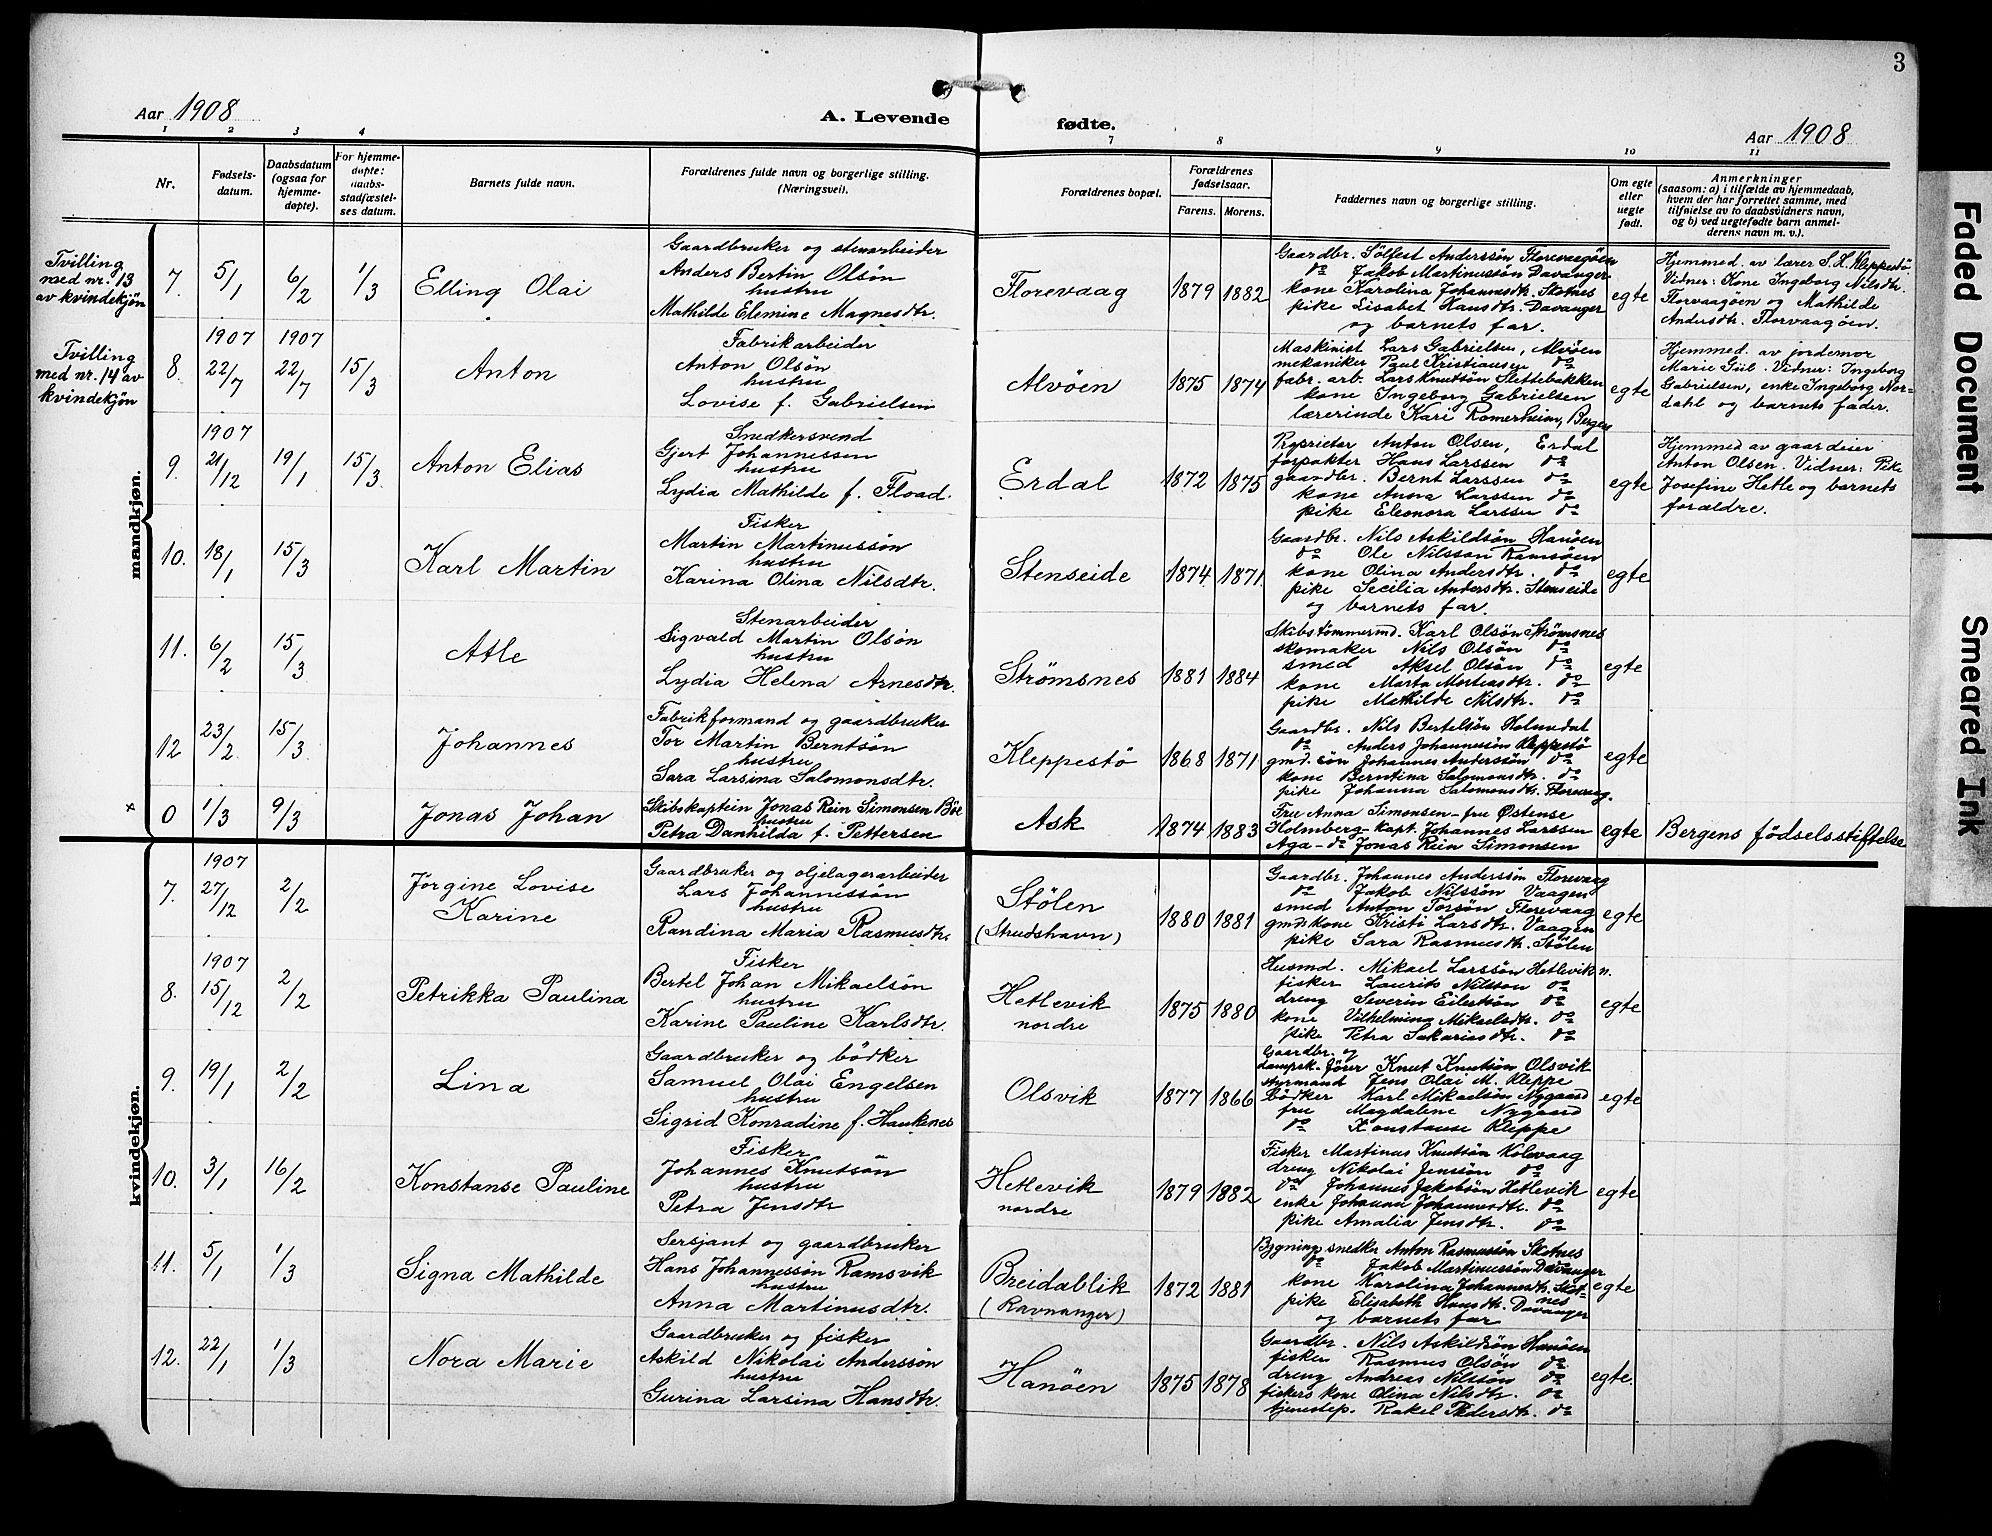 3
Aar 1908
A. Levende
fødte.
Aar 1908
1 2 3 4 7 8 9 10 11
Nr.
Fødsels-
datum.
Daabsdatum
(ogsaa for
hjemme-
døpte).
For hjemme-
døpte:
daabs-
stadfæstel-
ses datum.
Barnets fulde navn.
Forældrenes fulde navn og borgerlige stilling.
(Næringsvei).
Forældrenes bopæl.
Forældrenes
fødselsaar.
Farens. Morens.
Faddernes navn og borgerlige stilling.
Om egte
eller
uegte
født.
Anmerkninger
(saasom: a) i tilfælde av hjemmedaab,
hvem der har forrettet samme, med
tilføielse av to daabsvidners navn,
og b) ved uegtefødte barn anmel-
derens navn m. v.).
mandkjøn.
Tvilling
med nr. 13
av kvindekjøn
7. 5/1 6/2 1/3
Elling Olai
Gaardbruker og stenarbeider
Anders Bertin Olsøn
hustru
Mathilde Elemine Magnesdtr.
Florevaag
1879 1882
Gaardbr. Sølfest Anderssøn Florevaagøen
do Jakob Martinussøn Davanger
kone Karolina Johannesdtr. Skotnes
pike Lisabet Hansdtr. Davanger
og barnets far.
egte
Hjemmed. av lærer S. H. Kleppestö
Vidner: Kone Ingeborg Nilsdtr.
Florvaagöen og Mathilde
Andersdtr. Florvaagöen.
Tvilling
med nr. 14 av
kvindekjøn
8. 1907 22/7 1907 22/7 15/3
Anton
Fabrikarbeider
Anton Olsøn
hustru
Lovise f. Gabrielsen
Alvöen
1875 1874
Maskinist Lars Gabrielsen, Alvöen
mekaniker Paul Kristiansen do
fabr. arb. Lars Knutsøn Slettebakken
kone Ingeborg Gabrielsen
lærerinde Kari Romerheim, Bergen
egte
Hjemmed. av jordemor
Marie Giil. Vidner: Ingeborg
Gabrielsen, enke Ingeborg Nor-
dahl og barnets fader.
9. 1907 21/12 19/1 15/3
Anton Elias
Snedkersvend
Gjert Johannessen
hustru
Lydia Mathilde f. Fload.
Erdal
1872 1875
Anton Olsen, Erdal
forpakter Hans Larssen do
gaardbr. Bernt Larssen do
kone Anna Larssen do
pike Eleonora Larssen do
egte
Hjemmed av gaardeier
Anton Olsen. Vidner: Pike
Josefine Hetle og barnets
forældre.
10. 18/1 15/3
Karl Martin
Fisker
Martin Martinussön
hustru
Karina Olina Nilsdtr.
Stenseide
1874 1871
Gaardbr. Nils Askildsön Hanöen
do Ole Nilsson Ramsöen
kone Olina Andersdtr. do
pike Secilia Andersdtr. Stenseide
og barnets far.
egte
11. 6/2 15/3
Atle
Stenarbeider
Sigvald Martin Olsøn
hustru
Lydia Helena Arnesdtr.
Strömsnes
1881 1884
Skibstömmermd. Karl Olsön Strömsnes
skomaker Nils Olsön do
smed Aksel Olsön do
kone Marta Mortensdtr. do
pike Mathilde Nilsdtr. do
egte
12 23/2 15/3
Johannes
Fabrikformand og gaardbruker
Tor Martin Berntsøn
hustru
Sara Larsina Salomonsdtr.
Kleppestö
1868 1871
Gaardbr. Nils Bertelsön Holmedal
do Anders Johannesøn Kleppestö
gmd. sön Johannes Anderssön do
kone Berntina Salomonsdtr. do
pike Johanna Salomonsdtr. Florevaag.
egte
x
0 1/3 9/3
Jonas Johan
Skibskaptein Jonas Rein Simonsen Böe
hustru
Petra Danhilda f. Pettersen
Ask
1874 1883
Fru Anna Simonsen - fru Østense
Holmberg - kapt. Johannes Larssen
Aga - do Jonas Rein Simonsen
egte
Bergens födselsstiftelse
kvindekjøn.
7. 1907 27/12 2/2
Jörgine Lovise
Karine
Gaardbruker og oljelagerarbeider
Lars Johannessön
hustru
Randina Maria Rasmusdtr.
Stölen
(Strudshavn)
1880 1881
Gaardbr. Johannes Anderssön Florevaag
do Jakob Nilssön Vaagen
smed Anton Torsön Florevaag
gmdskone Kristi Larsdtr. Vaagen
pike Sara Rasmusdtr. Stölen
egte
8. 1907 15/12 2/2
Petrikka Paulina
Fisker
Bertel Johan Mikaelsön
hustru
Karine Pauline Karlsdtr.
Hetlevik
nordre
1875 1880
Husmd. Mikael Larssön Hetlevik n.
fisker Laurits Nilsson do
dreng Severin Eilertsön do
kone Vilhelmina Mikaelsdtr. do
pike Petra Sakariasdtr. do
egte
9. 19/1 2/2
Lina
Gaardbruker og bödker
Samuel Olai Engelsen
hustru
Sigrid Konradine f. Haukenes
Olsvik
1877 1866
Gaardbr. og
dampsk. fører Knut Knutsön Olsvik
styrmand Jens Olai M. Kleppe
Bödker Karl Mikaelsön Nygaard
fru Magdalene Nygaard
do Konstanse Kleppe
egte
10. 3/1 16/2
Konstanse Pauline
Fisker
Johannes Knutsön
hustru
Petra Jensdtr
Hetlevik
nordre
1879 1882
Fisker Martinus Knutsön Kolevaag
dreng Nikolai Jensön do
do Johannes Jakobsön Hetlevik
enke Johanna Johannesdtr. do
pike Amalia Jensdtr. do
egte
11. 5/1 1/3
Signa Mathilde
Sersjant og gaardbruker
Hans Johannessön Ramsvik
hustru
Anna Martinusdtr.
Breidablik
(Ravnanger)
1872 1881
Bygningssnedker Anton Rasmussön Skotnes
do Jakob Martinussön Davanger
kone Karolina Johannesdtr. Skot-
nes
pike Elisabeth Hansdtr. Davanger
og barnets far
egte
12. 22/1 1/3
Nora Marie
Gaardbruker og fisker
Askild Nikolai Anderssön
hustru
Gurina Larsina Hansdtr.
Hanöen
1875 1878
Gaardbr. Nils Askildsön Hanöen
fisker Rasmus Olsön do
dreng Andreas Nilssön do
fiskers kone Olina Nilsdtr. do
tjenestep. Rakel Pedersdtr. do
egte.
Faded Document
Smeared Ink